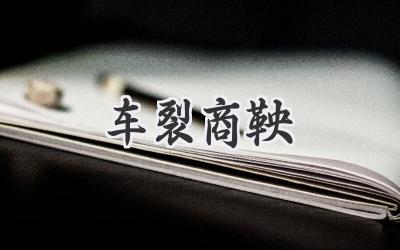 车裂商鞅